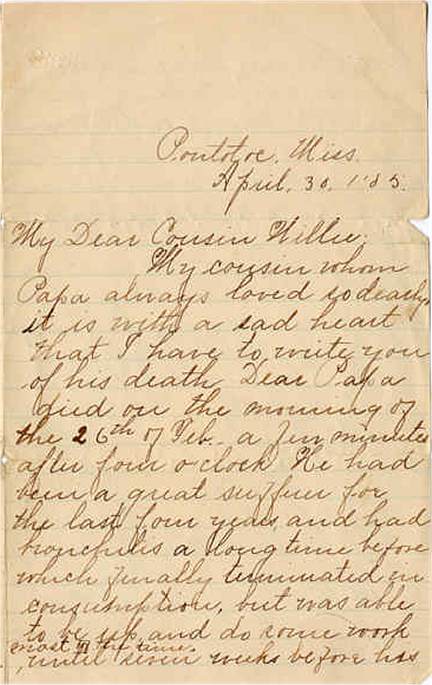 Pontotoc, Miss.
April, 30, 1'85.
My Dear Cousin Willie;
My cousin whom
Papa always loved so dearly,
it is with a sad heart
that I have to write you
of his death. Dear Papa
died on the morning of
the 26th of Feb. a few minutes
after four o'clock. He had
been a great sufferer for
the last four years, and had
bronchitis a long time before
which finally terminated in
consumption, but was able
to be up, and do some work
most of the time.
, until seven weeks before his